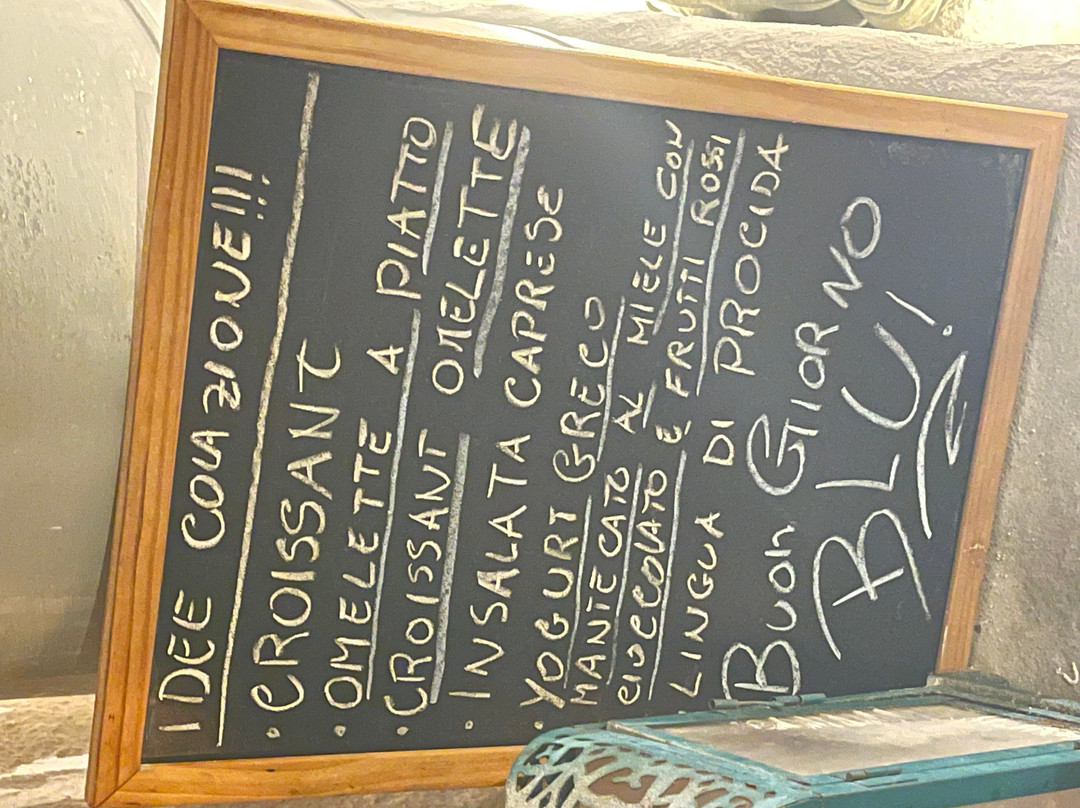 IDEE COLAZIONE!!!
• CROISSANT
• OMELETTE A PIATTO
• CROISSANT OMELETTE
• INSALATA CAPRESE
• YOGURT GRECO
MANTECATO AL MIELE CON
CIOCCOLATO E FRUTTI ROSSI
LINGUA DI PROCIDA
BUON GIORNO
BLU!